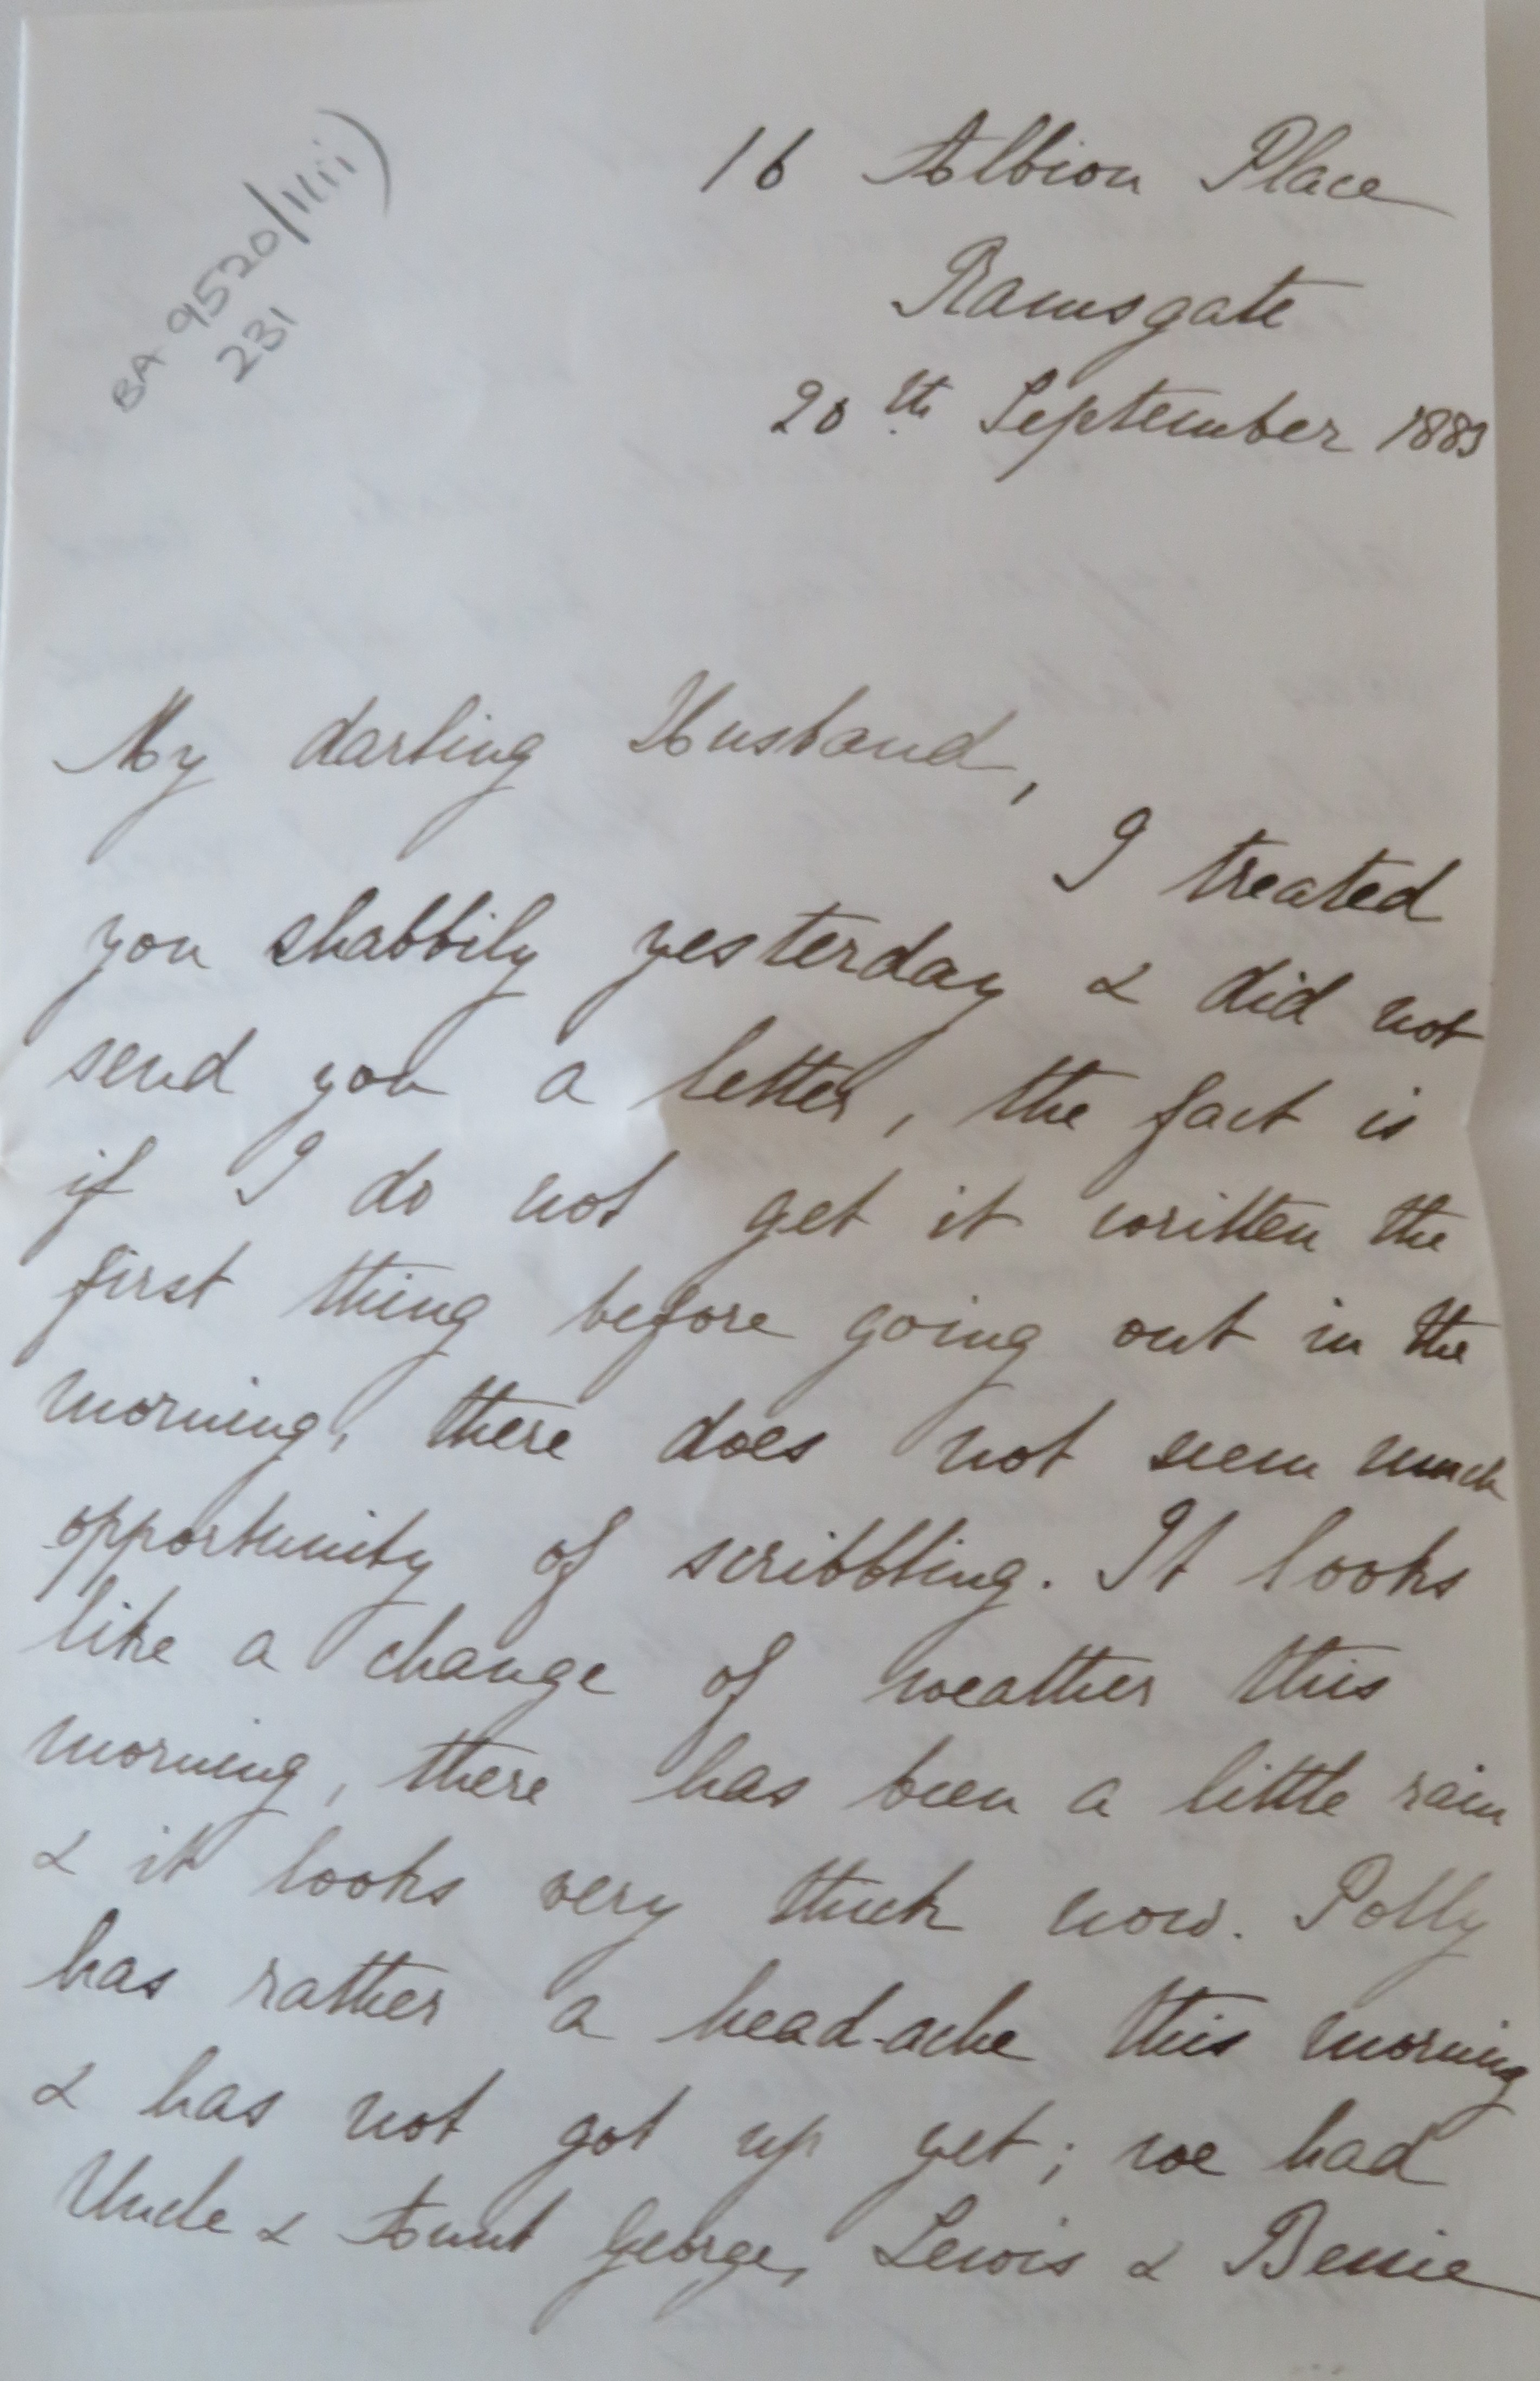 BA 9520/1(ii)
231
16 Albion Place
Ramsgate
20th September 1883
My darling Husband,
I treated
you shabbily yesterday & did not
send you a letter, the fact is
if I do not get it written the
first thing before going out in the
morning, there does not seem much
opportunity of scribbling. It looks
like a change of weather this
morning, there has been a little rain
& it looks very thick now. Polly
has rather a head-ache this morning
& has not got up yet; we had
Uncle & Aunt George, Lewis & Bennie